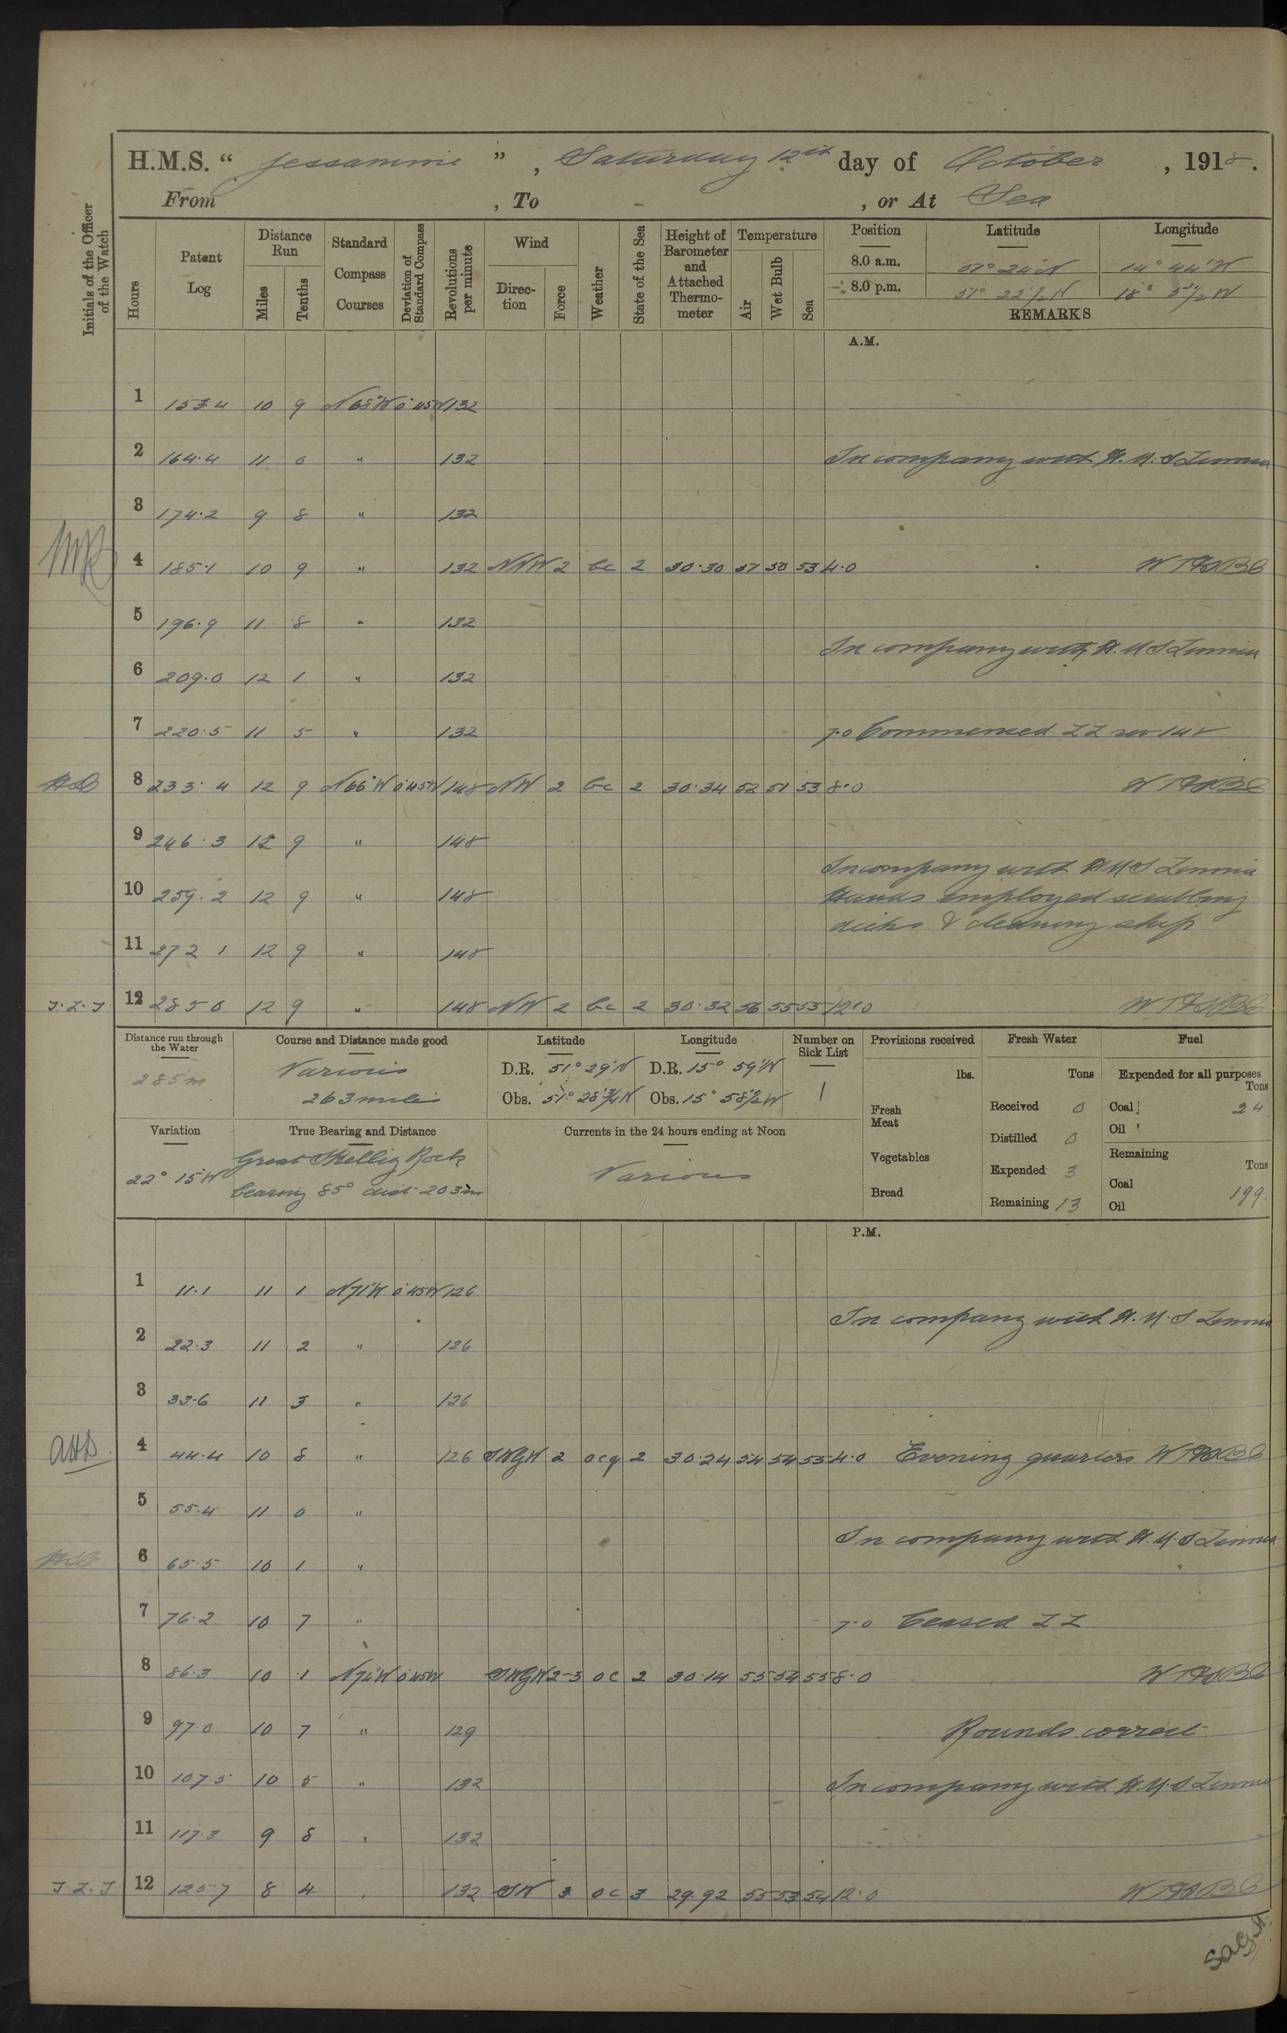 H.M.S. “ Jessamine ” , Saturday 12th day of October , 1918.
From , To - , or At Sea
Initials of the Officer of the Watch
Hours
Patent Log
Distance Run
Miles
Tenths
Standard Compass Courses
Deviation of Standard Compass
Revolutions per minute
Wind
Direction
Force
Weather
State of the Sea
Height of Barometer and Attached Thermometer
Temperature
Air
Wet Bulb
Sea
Position Latitude Longitude
8.0 a.m. 51° 24' N 14° 44' W
8.0 p.m. 51° 22½ N 18° 5½ W
REMARKS
A.M.
1 153.4 10 9 N68°W 0°45W 132
2 164.4 11 0 " 132 In company with H.M.S
3 174.2 9 8 " 132
4 185.1 10 9 " 132 NNW 2 bc 2 30.30 53 4.0
5 196.9 11 8 " 132
In company with H.M.S
6 209.0 12 1 " 132
7 220.5 11 5 " 132 7.0 Commenced ZZ rev 148
8 233.4 12 9 N66°W 0°45W 148 NW 2 bc 2 30.34 52 51 53 8.0
9 246.3 12 9 " 148
In company with HMS
10 259.2 12 9 " 148 Hands employed scrubbing
decks & cleaning ship
11 272 1 12 9 " 148
12 285 0 12 9 " 148 NW 2 bc 2 30.32 56 55 55 12.0
Distance run through the Water
285m
Course and Distance made good
Various
263 miles
Latitude
D.R. 51° 29' N
Obs. 51° 28¾ N
Longitude
D.R. 15° 59' W
Obs. 15° 58½ W
Number on Sick List
1
Provisions received
lbs.
Fresh Meat
Vegetables
Bread
Fresh Water
Tons
Received 0
Distilled 0
Expended 3
Remaining 13
Fuel
Expended for all purposes
Tons
Coal 24
Oil
Remaining
Tons
Coal 199
Oil
Variation
22° 15' W
True Bearing and Distance
Great Skellig Rock
bearing 85° dist 203m
Currents in the 24 hours ending at Noon
Various
P.M.
1 11.1 11 1 N71°W 0°45W 126
In company with H.M.S
2 22.3 11 2 " 126
3 33.6 11 3 " 126
4 44.4 10 8 " 126 SWbyW 2 ocq 2 30.24 54 54 55 4.0 Evening quarters
5 55.4 11 0 "
In company with H.M.S
6 65.5 10 1 "
7 76.2 10 7 " 7.0 Ceased ZZ
8 86.3 10 1 N71°W 0°45W SWbyW 2-3 oc 2 30.14 55 54 55 8.0
9 97.0 10 7 " 129 Rounds correct
10 107.5 10 5 " 132 In company with H.M.S
11 117.3 9 8 " 132
12 125.7 8 4 132 SW 3 oc 3 29.92 55 53 54 12.0